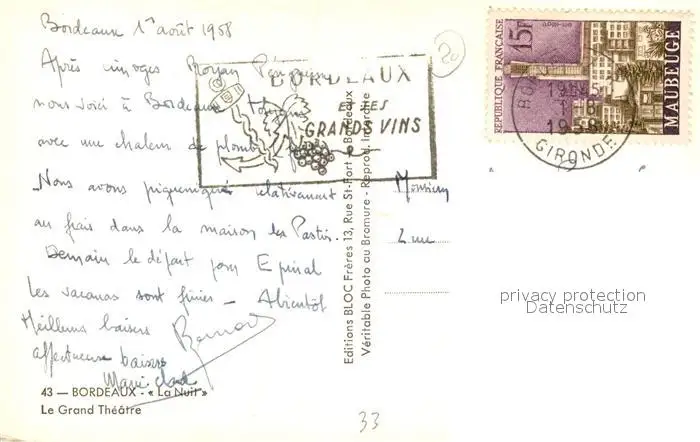 Bordeaux 1er août 1958
20
Après Limoges Royan
nous voici à Bordeaux toujours
avec une chaleur de plomb
Nous avons piqueniqué relativement
au frais dans la maison les Pastis.
Demain le départ pour Epinal
Les vacances sont finies – A bientôt
Meilleurs baisers Bernard
affectueux baisers
Marie
BORDEAUX
ET SES
GRANDS VINS
RÉPUBLIQUE FRANÇAISE
15F
MAUBEUGE
19H45
1-8
1958
GIRONDE
Monsieur
Luc
privacy protection
Datenschutz
Editions BLOC Frères 13, Rue St-Fort - Bordeaux
Véritable Photo au Bromure - Reprod. Interdite
43 — BORDEAUX - « La Nuit »
Le Grand Théâtre
33